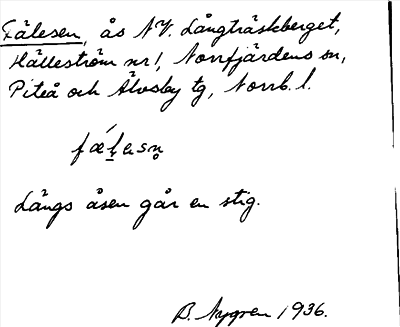 Fälesen, ås NV. Långträskberget,
Hälleström nr 1, Norrfjärdens sn,
Piteå och Älvsby tg, Norrb. l.
Längs åsen går en stig.
B. Nygren 1936.